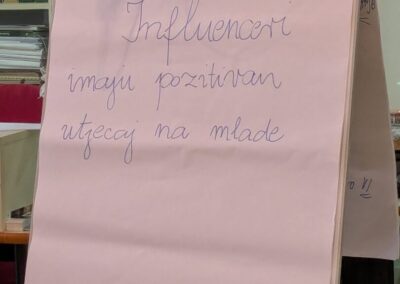 Influenceri
imaju pozitivan
utjecaj na mlade